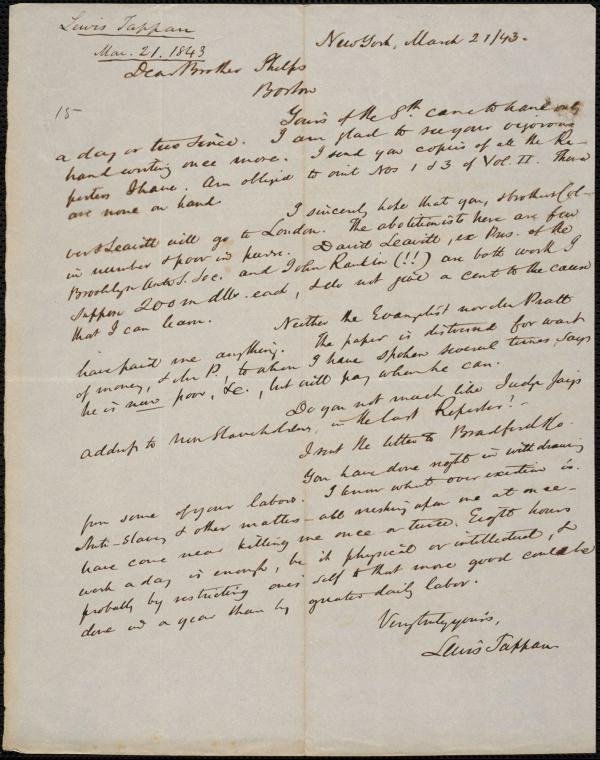 Lewis Tappan
Mar. 21. 1843
New York, March 21/43.
Dear Brother Phelps
Boston
15
Yours of the 8th. came to hand only
a day or two since. I am glad to see your vigorous
hand writing once more. I send you copies of all the Re-
porters I have. Am obliged to omit Nos 1 & 3 of Vol. II. There
are none on hand.
I sincerely hope that you, & brothers Col-
ver & Leavitt will go to London. The abolitionists here are few
in number & poor in purse. David Leavitt, ex Pres. of the
Brooklyn Anti S. Soc. and John Rankin (!!) are both worth I
suppose 200 m dlls. each, & do not give a cent to the cause
that I can learn.
Neither the Evangelist nor Dr Pratt
have paid me anything. The paper is distressed for want
of money, & Dr P., to whom I have spoken several times, says
he is now poor, &c., but will pay when he can.
Do you not much like Judge Jay's
address to non Slaveholders, in the last Reporter? -
I sent the letter to Bradford &c.
You have done right in withdrawing
from some of your labors. I know what over exertion is.
Anti-Slavery & other matters - all rushing upon me at once -
have come near killing me once or twice. Eight hours
work a day is enough, be it physical or intellectual, &
probably by restricting one's self to that more good could be
done in a year than by greater daily labor.
Very truly yours,
Lewis Tappan